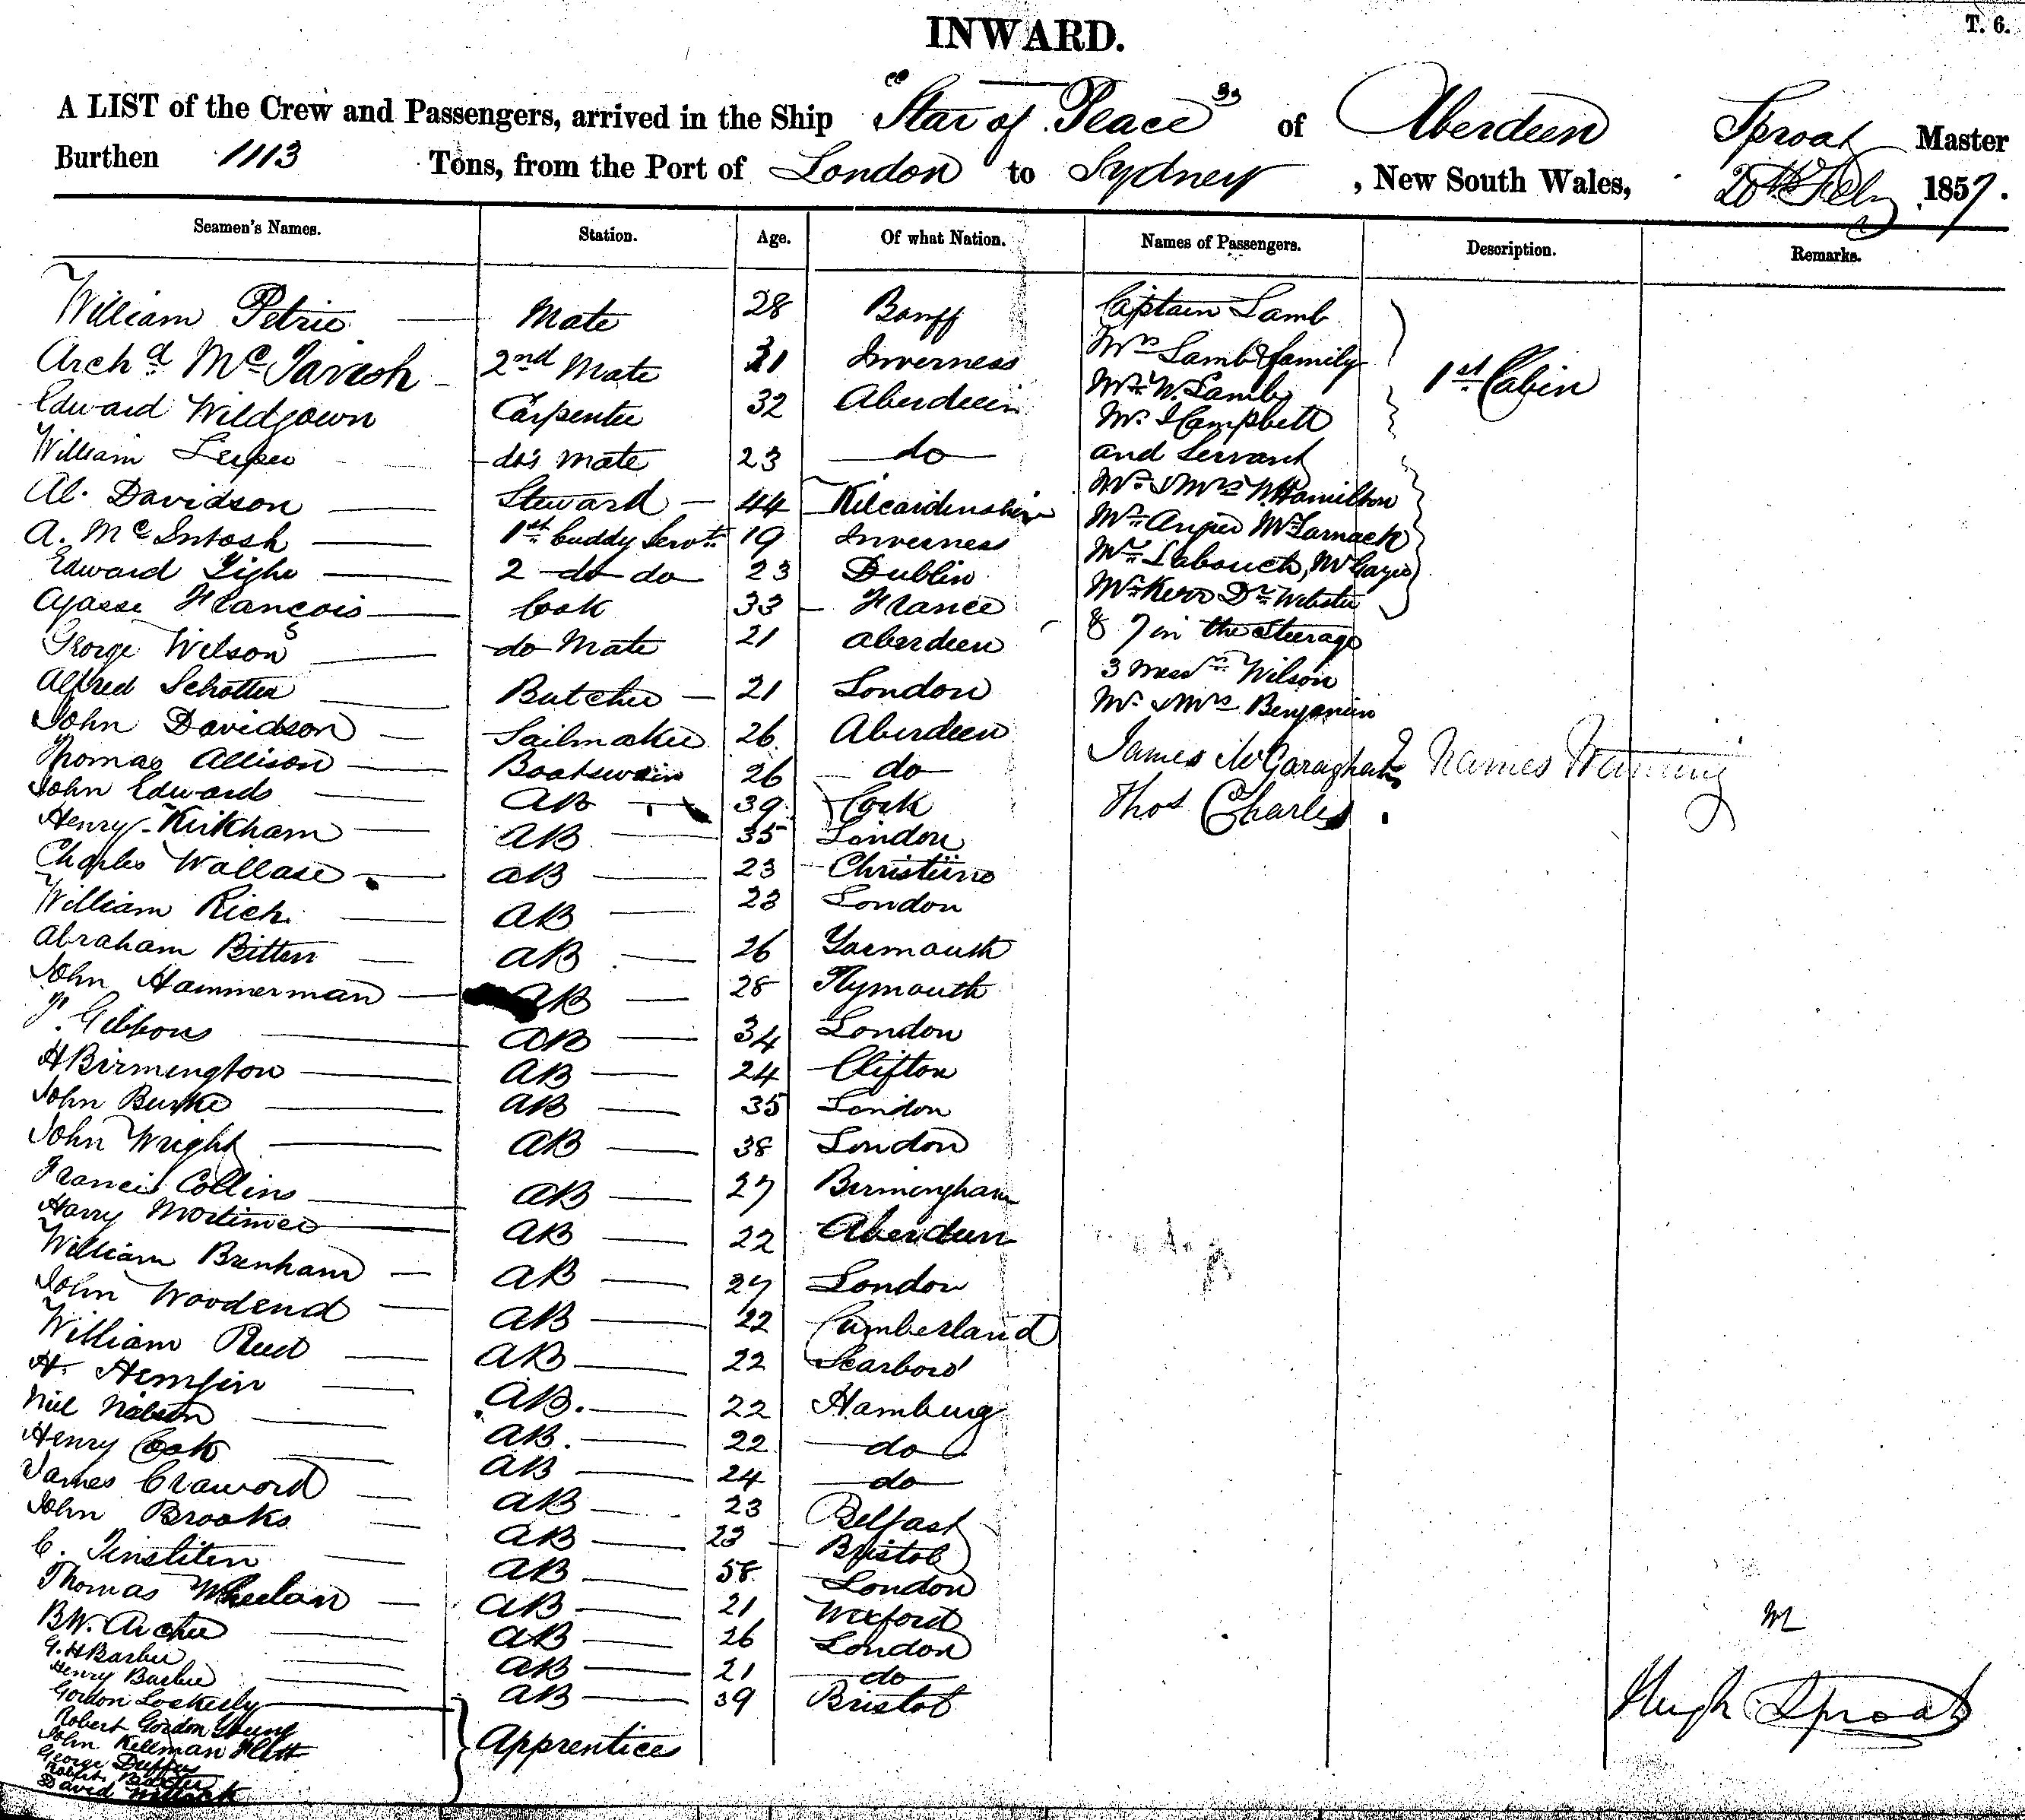 INWARD.
T. 6.
A LIST of the Crew and Passengers, arrived in the Ship "Star of Peace" of Aberdeen Sproat Master
Burthen 1113 Tons, from the Port of London to Sydney, New South Wales, 20th Feby 1857.
Seamen's Names. Station. Age. Of what Nation. Names of Passengers. Description. Remarks.
William Petrie Mate 28 Banff Captain Lamb
Archd McTavish 2nd Mate 21 Inverness Mrs Lamb & family 1st Cabin
Edward Wildgown Carpenter 32 Aberdeen Mr W. Lamb
Mr Campbell
William Leiper do's Mate 23 do and Servant
Al. Davidson Steward 44 Kilcardinshire Mr & Mrs W Hamilton
A. McIntosh 1st Cuddy Servt 19 Inverness Mr Angus Mr Larnach
Edward Tighe 2 do do 23 Dublin Mr Labouch, Mr Gayer
Ajasse François Cook 33 France Mr Kerr Dr Webster
George Wilson do Mate 21 Aberdeen & 7 in the Steerage
3 Messrs Wilson
Alfred Schotter Butcher 21 London Mr & Mrs Benjamin
John Davidson Sailmaker 26 Aberdeen James McGaraghan Names Wanting
Thomas Allison Boatswain 26 do
John Edwards AB 39 Cork Thos Charles
Henry Kirkham AB 35 London
Charles Wallace AB 23
William Rich AB 23 London
Abraham Bitten AB 26 Yarmouth
John Hammerman AB 28 Plymouth
Gibbons AB 34 London
H Birmington AB 24 Clifton
John Burke AB 35 London
John Wright AB 38 London
Francis Collins AB 27 Birmingham
Harry Mortimer AB 22 Aberdeen
William Brenham AB 27 London
John Woodend AB 22 Cumberland
William Reed AB 22 Scarboro'
H. Hemsin AB. 22 Hamburg
Niel Nielson AB. 22 do
Henry Cook AB 24 do
James Craword AB 23 Belfast
John Brooks AB 23 Bristol
C. Tinsliten AB 58 London
Thomas Wheelan AB 21 Wexford
B W. Archer AB 26 London
G. H Barber AB 21 do
Henry Barber AB 39 Bristol
Gordon Loskerby
Robert Gordon Young
John Kellman Flett Apprentices
George Duffus
Robert Baxter
David
M
Hugh Sproat